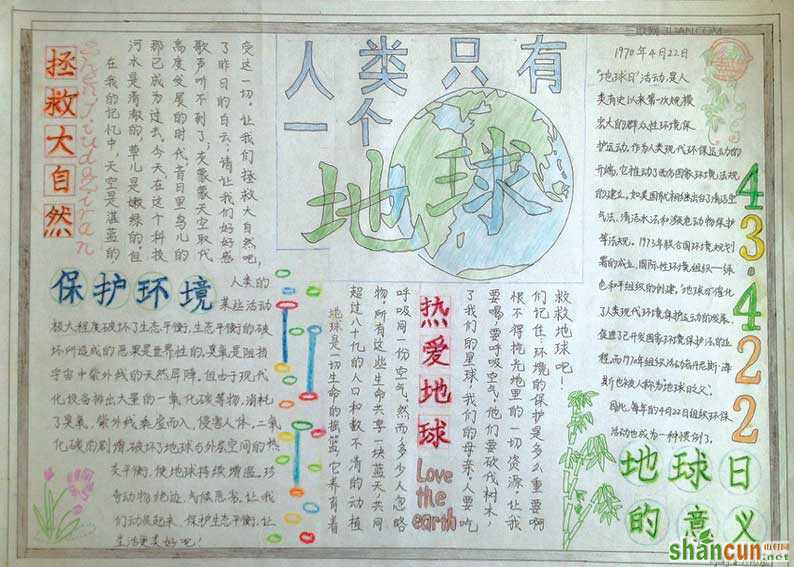 人类只有
一个
地球
拯救大自然
在我的记忆中,天空是湛蓝的
河水是清澈的,草儿是嫩绿的,但
那已成为过去,今天在这个科技
高度发展的时代,昔日里鸟儿的
歌声听不到了;灰蒙蒙天空取代
了昨日的白云;请让我们好好感
受这一切。让我们拯救大自然吧,
保护环境
人类的
某些活动
极大程度破坏了生态平衡,生态平衡的破
坏所造成的恶果是世界性的,臭氧是阻挡
宇宙中紫外线的天然屏障。但由于现代
化设备排出大量的一氧化碳等物,消耗
了臭氧,紫外线乘虚而入,侵害人体。二氧
化碳的剧增,破坏了地球与外层空间的热
交平衡,使地球持续增温。珍
奇动物绝迹,气候恶劣,让我
们动员起来,保护生态平衡,让
生活更美好吧!
热爱地球
Love
the
earth
地球是一切生命的摇篮,它养育着
超过八十九的人口和数不清的动植
物,所有这些生命共享一块蓝天,共同
呼吸同一份空气。然而多少人忽略
了我们的星球,我们的母亲,人要吃
要喝,要呼吸空气,他们要砍伐树木,
恨不得挖光地里的一切资源,让我
们记住:环境的保护是多么重要啊
救救地球吧!
1970年4月22日
“地球日”活动,是人
类有史以来第一次规模
宏大的群众性环境保
护运动,作为人类现代环保运动的
开端,它推动了西方国家环境法规
的建立。如美国就相继出台了清洁空
气法,清洁水法和濒危动物保护
等法规。1973年联合国环境规划
署的成立,国际性环境组织—绿
色和平组织的创建。“地球日”强化
了人类现代环境保护运动的发展,
促进了已开发国家环境保护法的进
程。而1970年组织活动的丹尼斯·海
斯也被人称为地球日之父。
因此,每年的4月22日组织环保
活动也成为一种惯例了。
4
3·4
2
2
地球日
的意义
shancun
山村网
.net